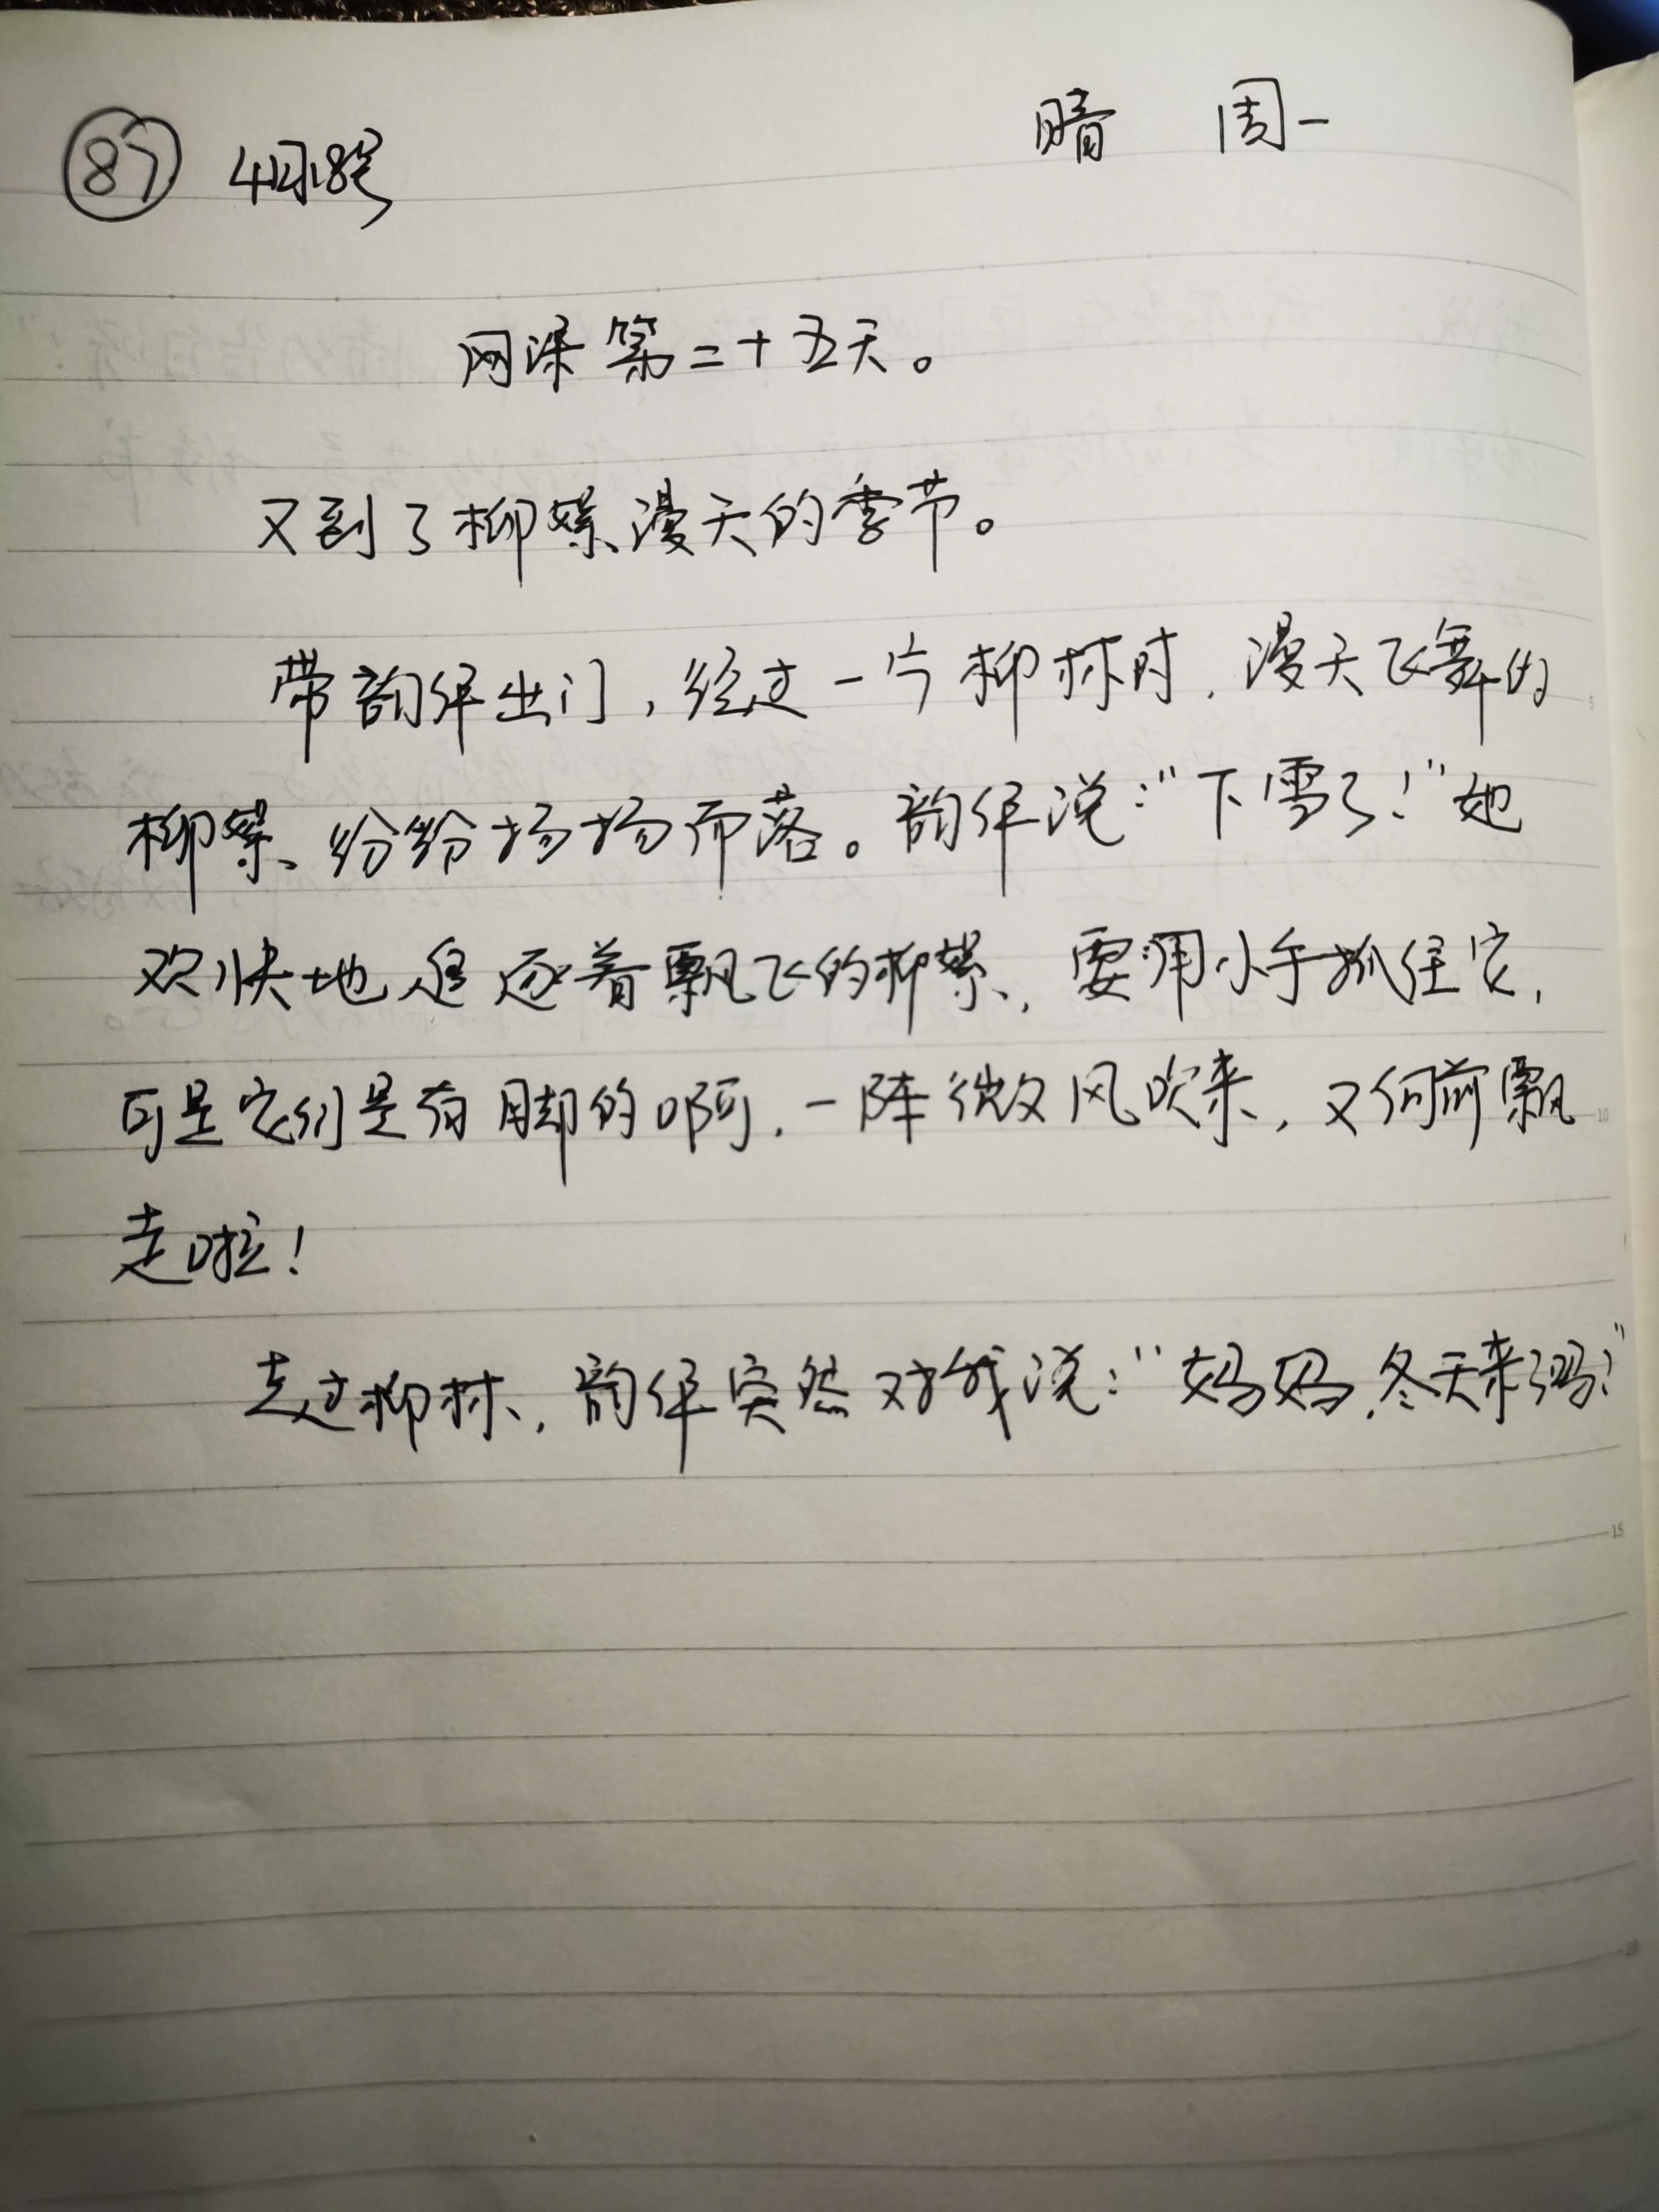 87 4月18号 晴 周一
网课第二十五天。
又到了柳絮漫天的季节。
带韵伊出门，经过一片柳林时，漫天飞舞的
柳絮、纷纷扬扬而落。韵伊说："下雪了！"她
欢快地追逐着飘飞的柳絮，要用小手抓住它，
可是它们是有脚的啊，一阵微风吹来，又向前飘
走啦！
走过柳林，韵伊突然对我说："妈妈，冬天来了吗？"